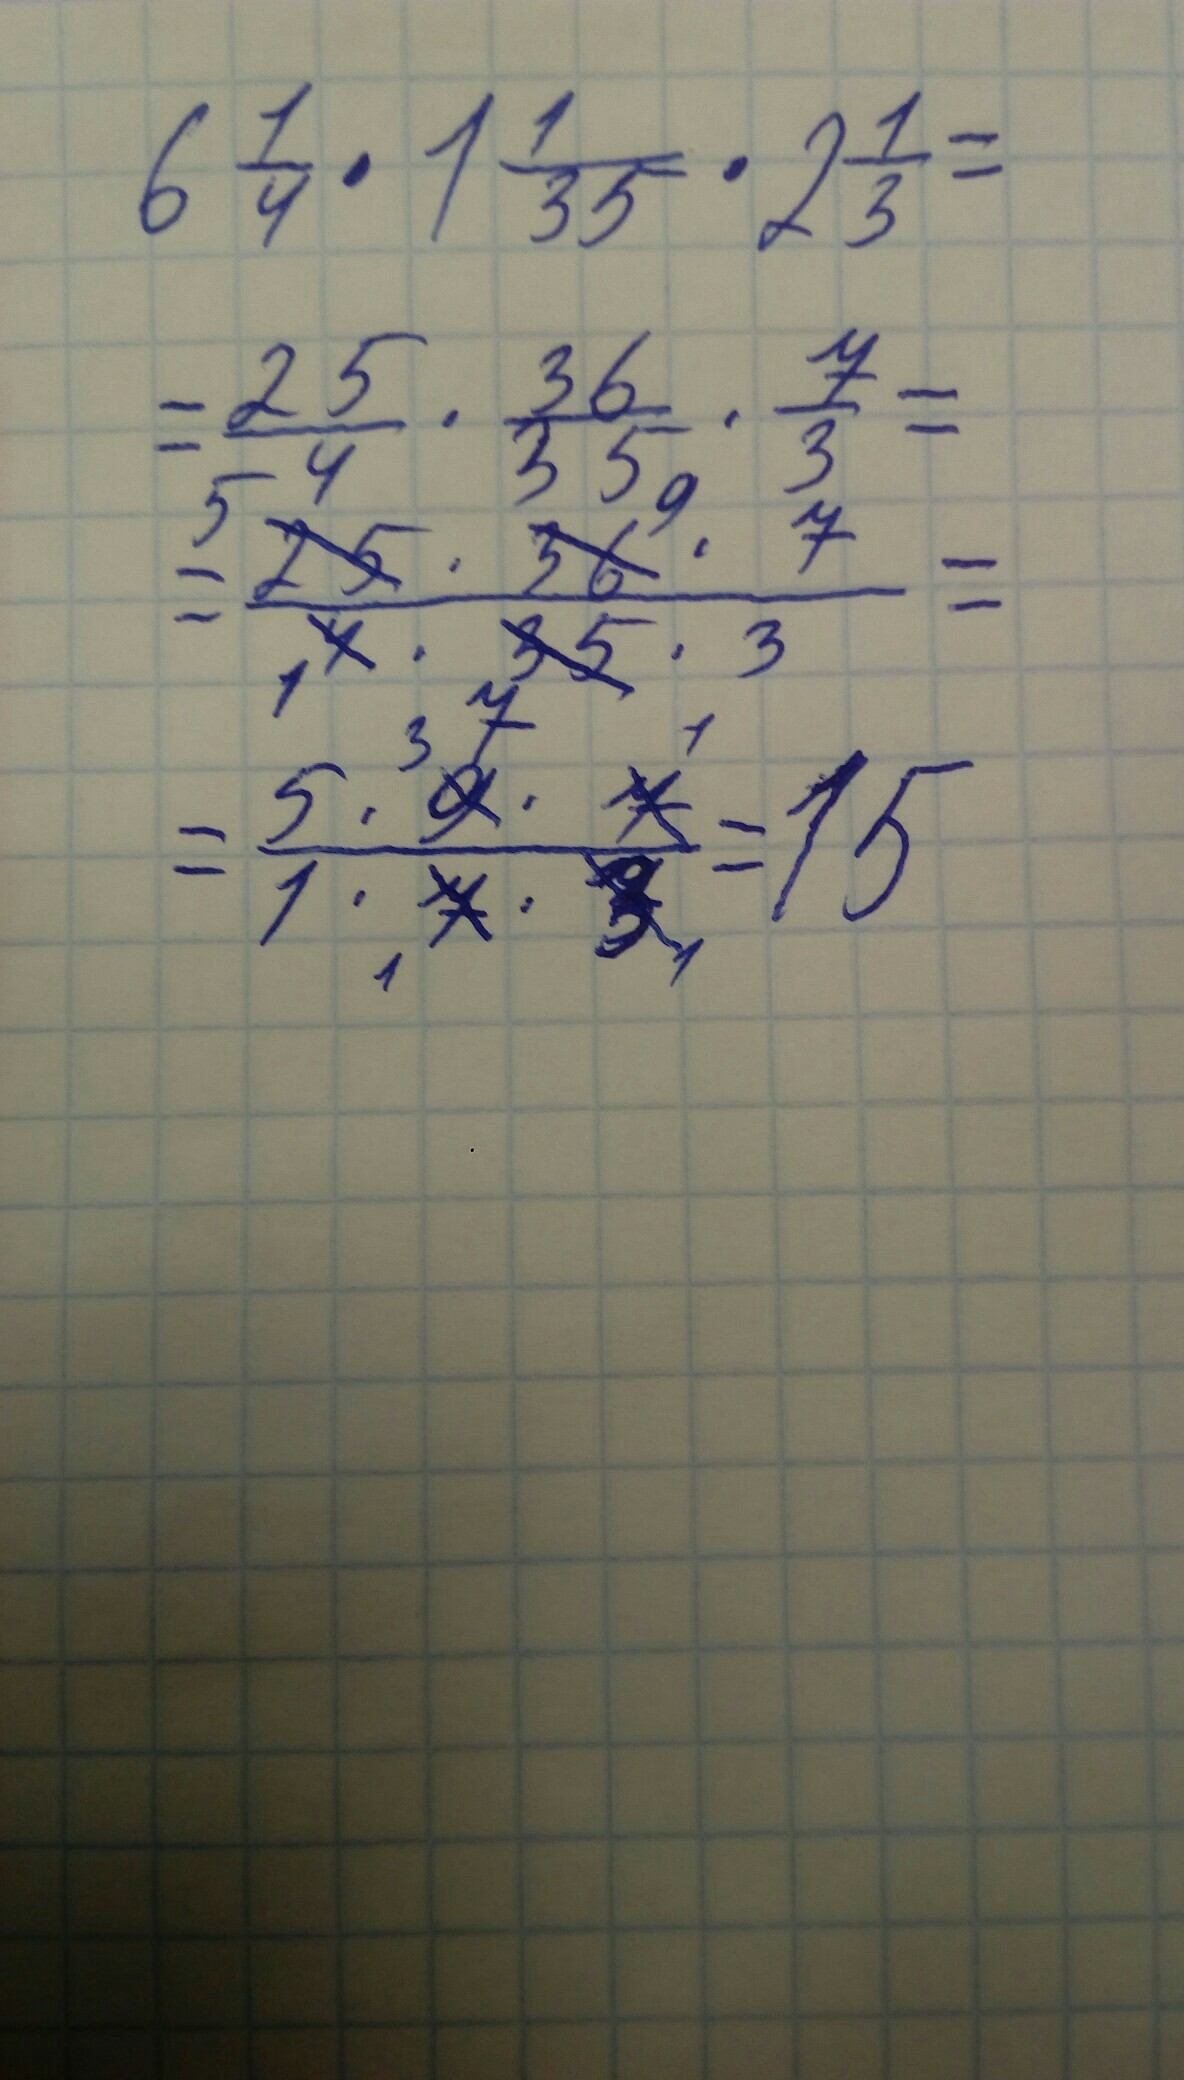 6 1/4 · 1 1/35 · 2 1/3 =
= 25/4 · 36/35 · 7/3 =
= 5 25 · 36 9 · 7 / 1 4 · 35 7 · 3 =
= 5 · 9 3 · 7 1 / 1 · 7 1 · 3 1 = 15